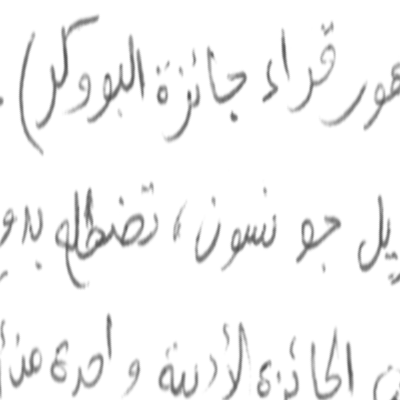 هور قراء جائزة البووكر).
يل جونسون، تضطلع بدو
الجائزة الأدبية واحدة من أ